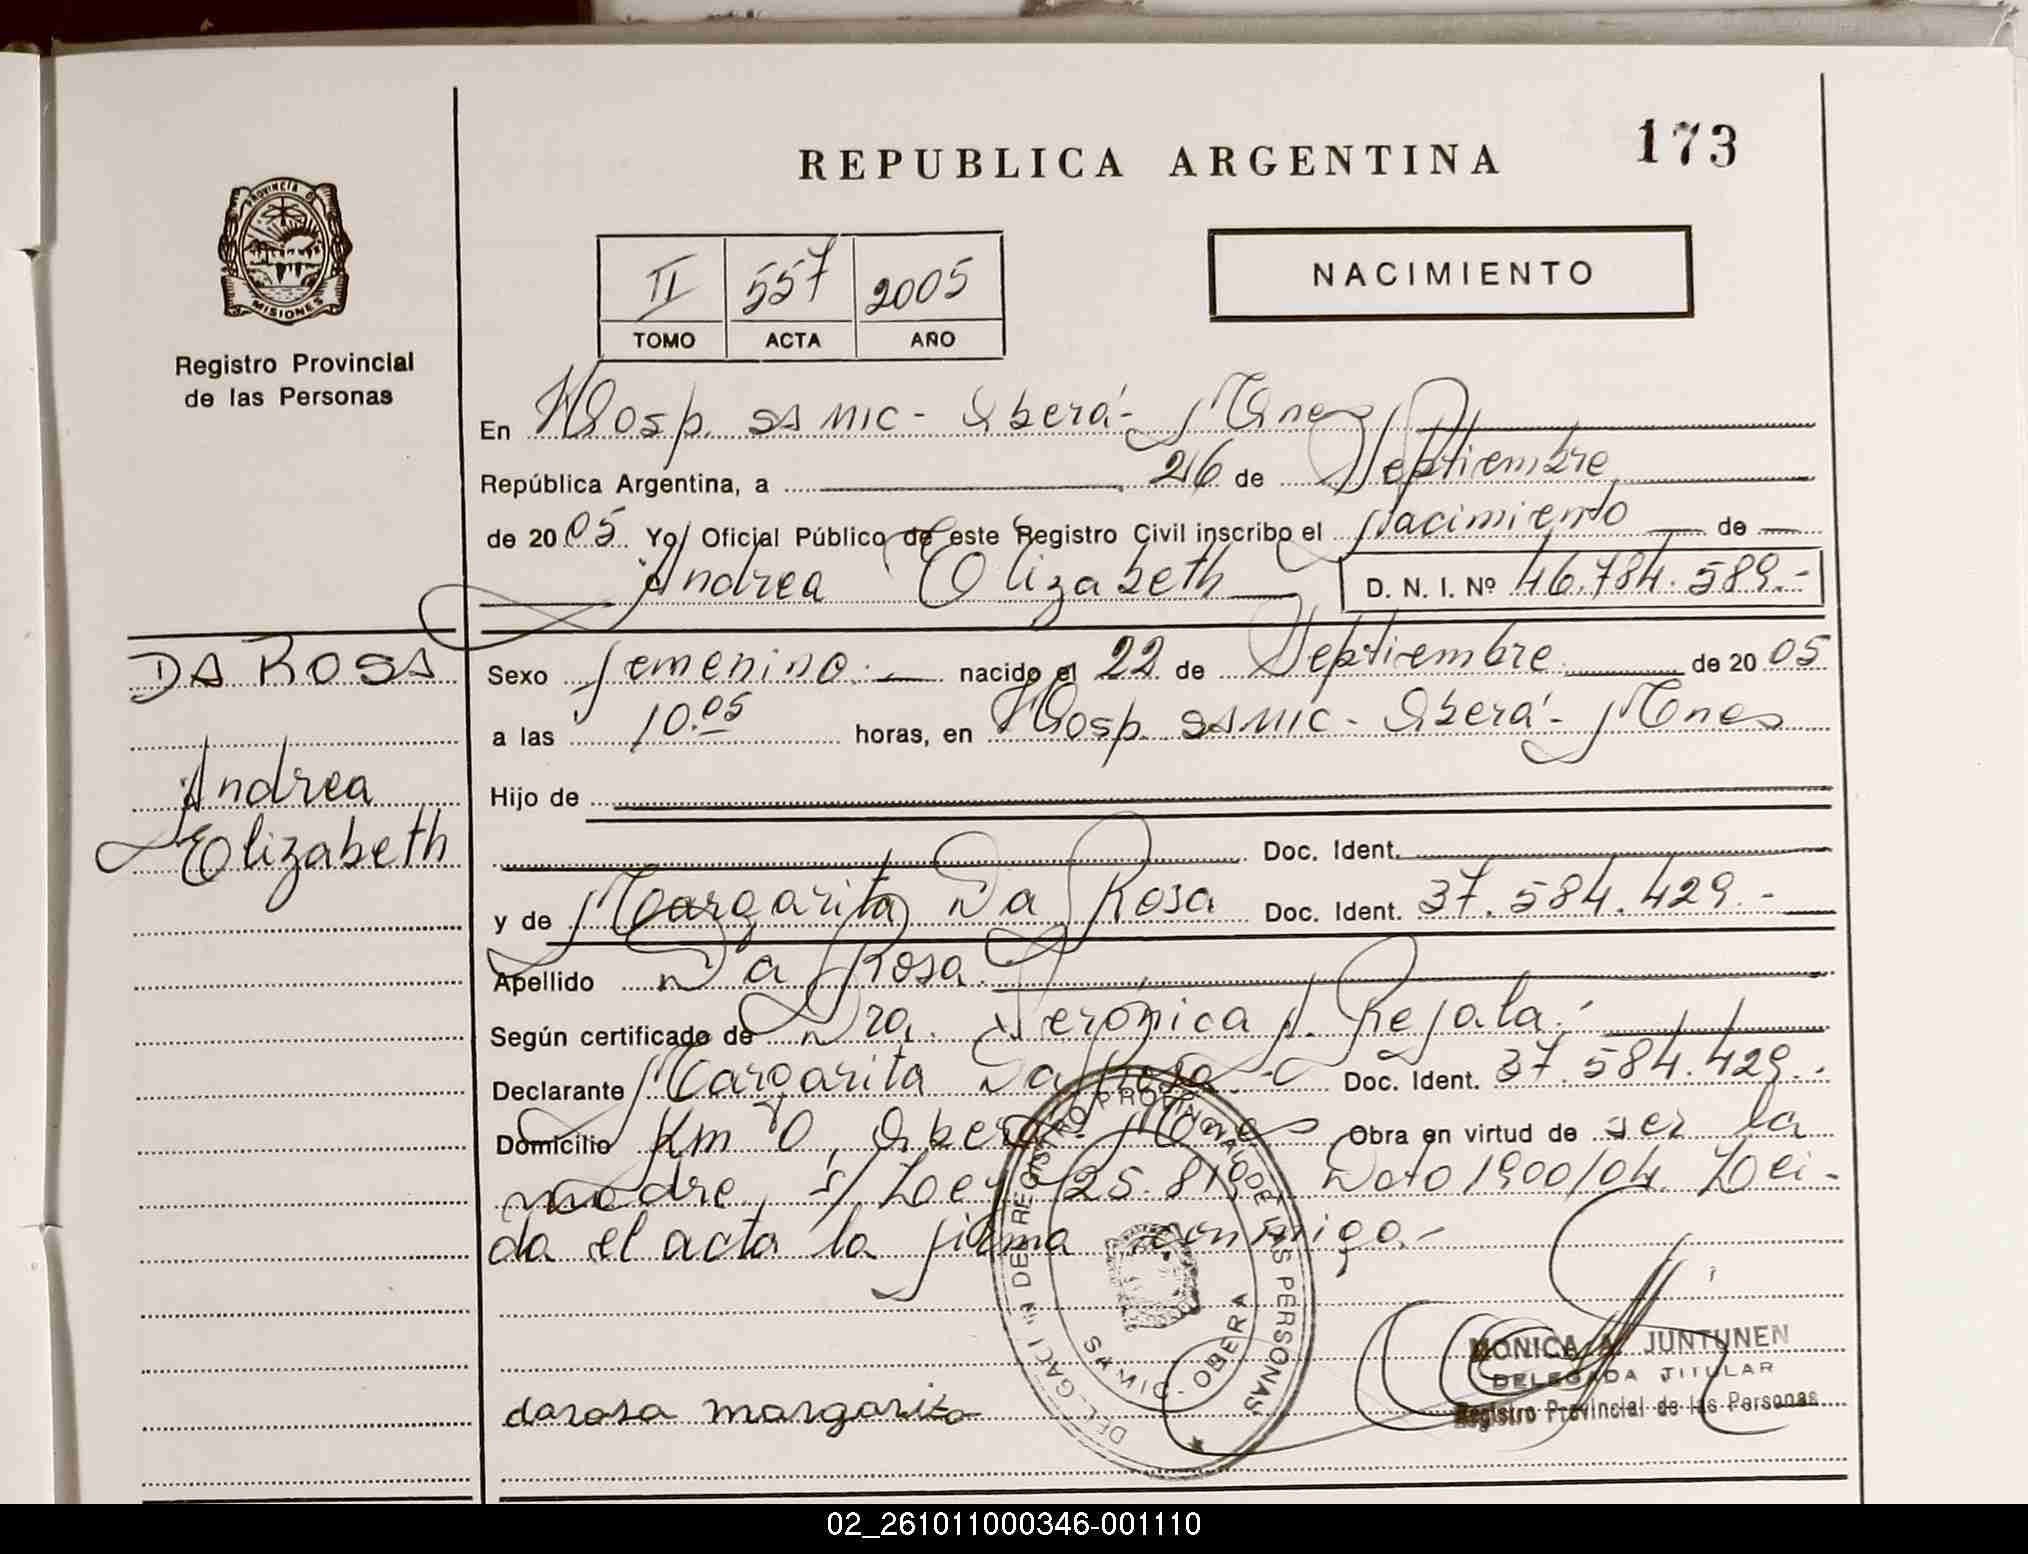 REPUBLICA ARGENTINA
173
PROVINCIA D
MISIONES
Registro Provincial
de las Personas
II 557 2005
TOMO ACTA AÑO
NACIMIENTO
En Hosp. SAMIC - Oberá - Mnes
República Argentina, a 26 de Septiembre
de 2005 Yo, Oficial Público de este Registro Civil inscribo el Nacimiento de
Andrea Elizabeth D. N. I. Nº 46.784.589.-
DA ROSA
Andrea
Elizabeth
Sexo femenino. nacido el 22 de Septiembre de 2005
a las 10.05 horas, en Hosp. SAMIC - Oberá - Mnes
Hijo de
Doc. Ident.
y de Margarita Da Rosa Doc. Ident. 37.584.429.-
Apellido Da Rosa.
Según certificado de Dra. Verónica Rejala.
Declarante Margarita Da Rosa.- Doc. Ident. 37.584.429.-
Domicilio Km 0, Oberá - Mnes Obra en virtud de ser la
madre, s/ Ley 25.819 Dcto 1900/04. Lei-
da el acta la firma conmigo.-
DELEGACI DEL REGISTRO PROVINCIAL DE LAS PERSONAS
SAMIC - OBERA
MONICA A. JUNTUNEN
DELEGADA TITULAR
Registro Provincial de las Personas
darosa margarita
02_261011000346-001110